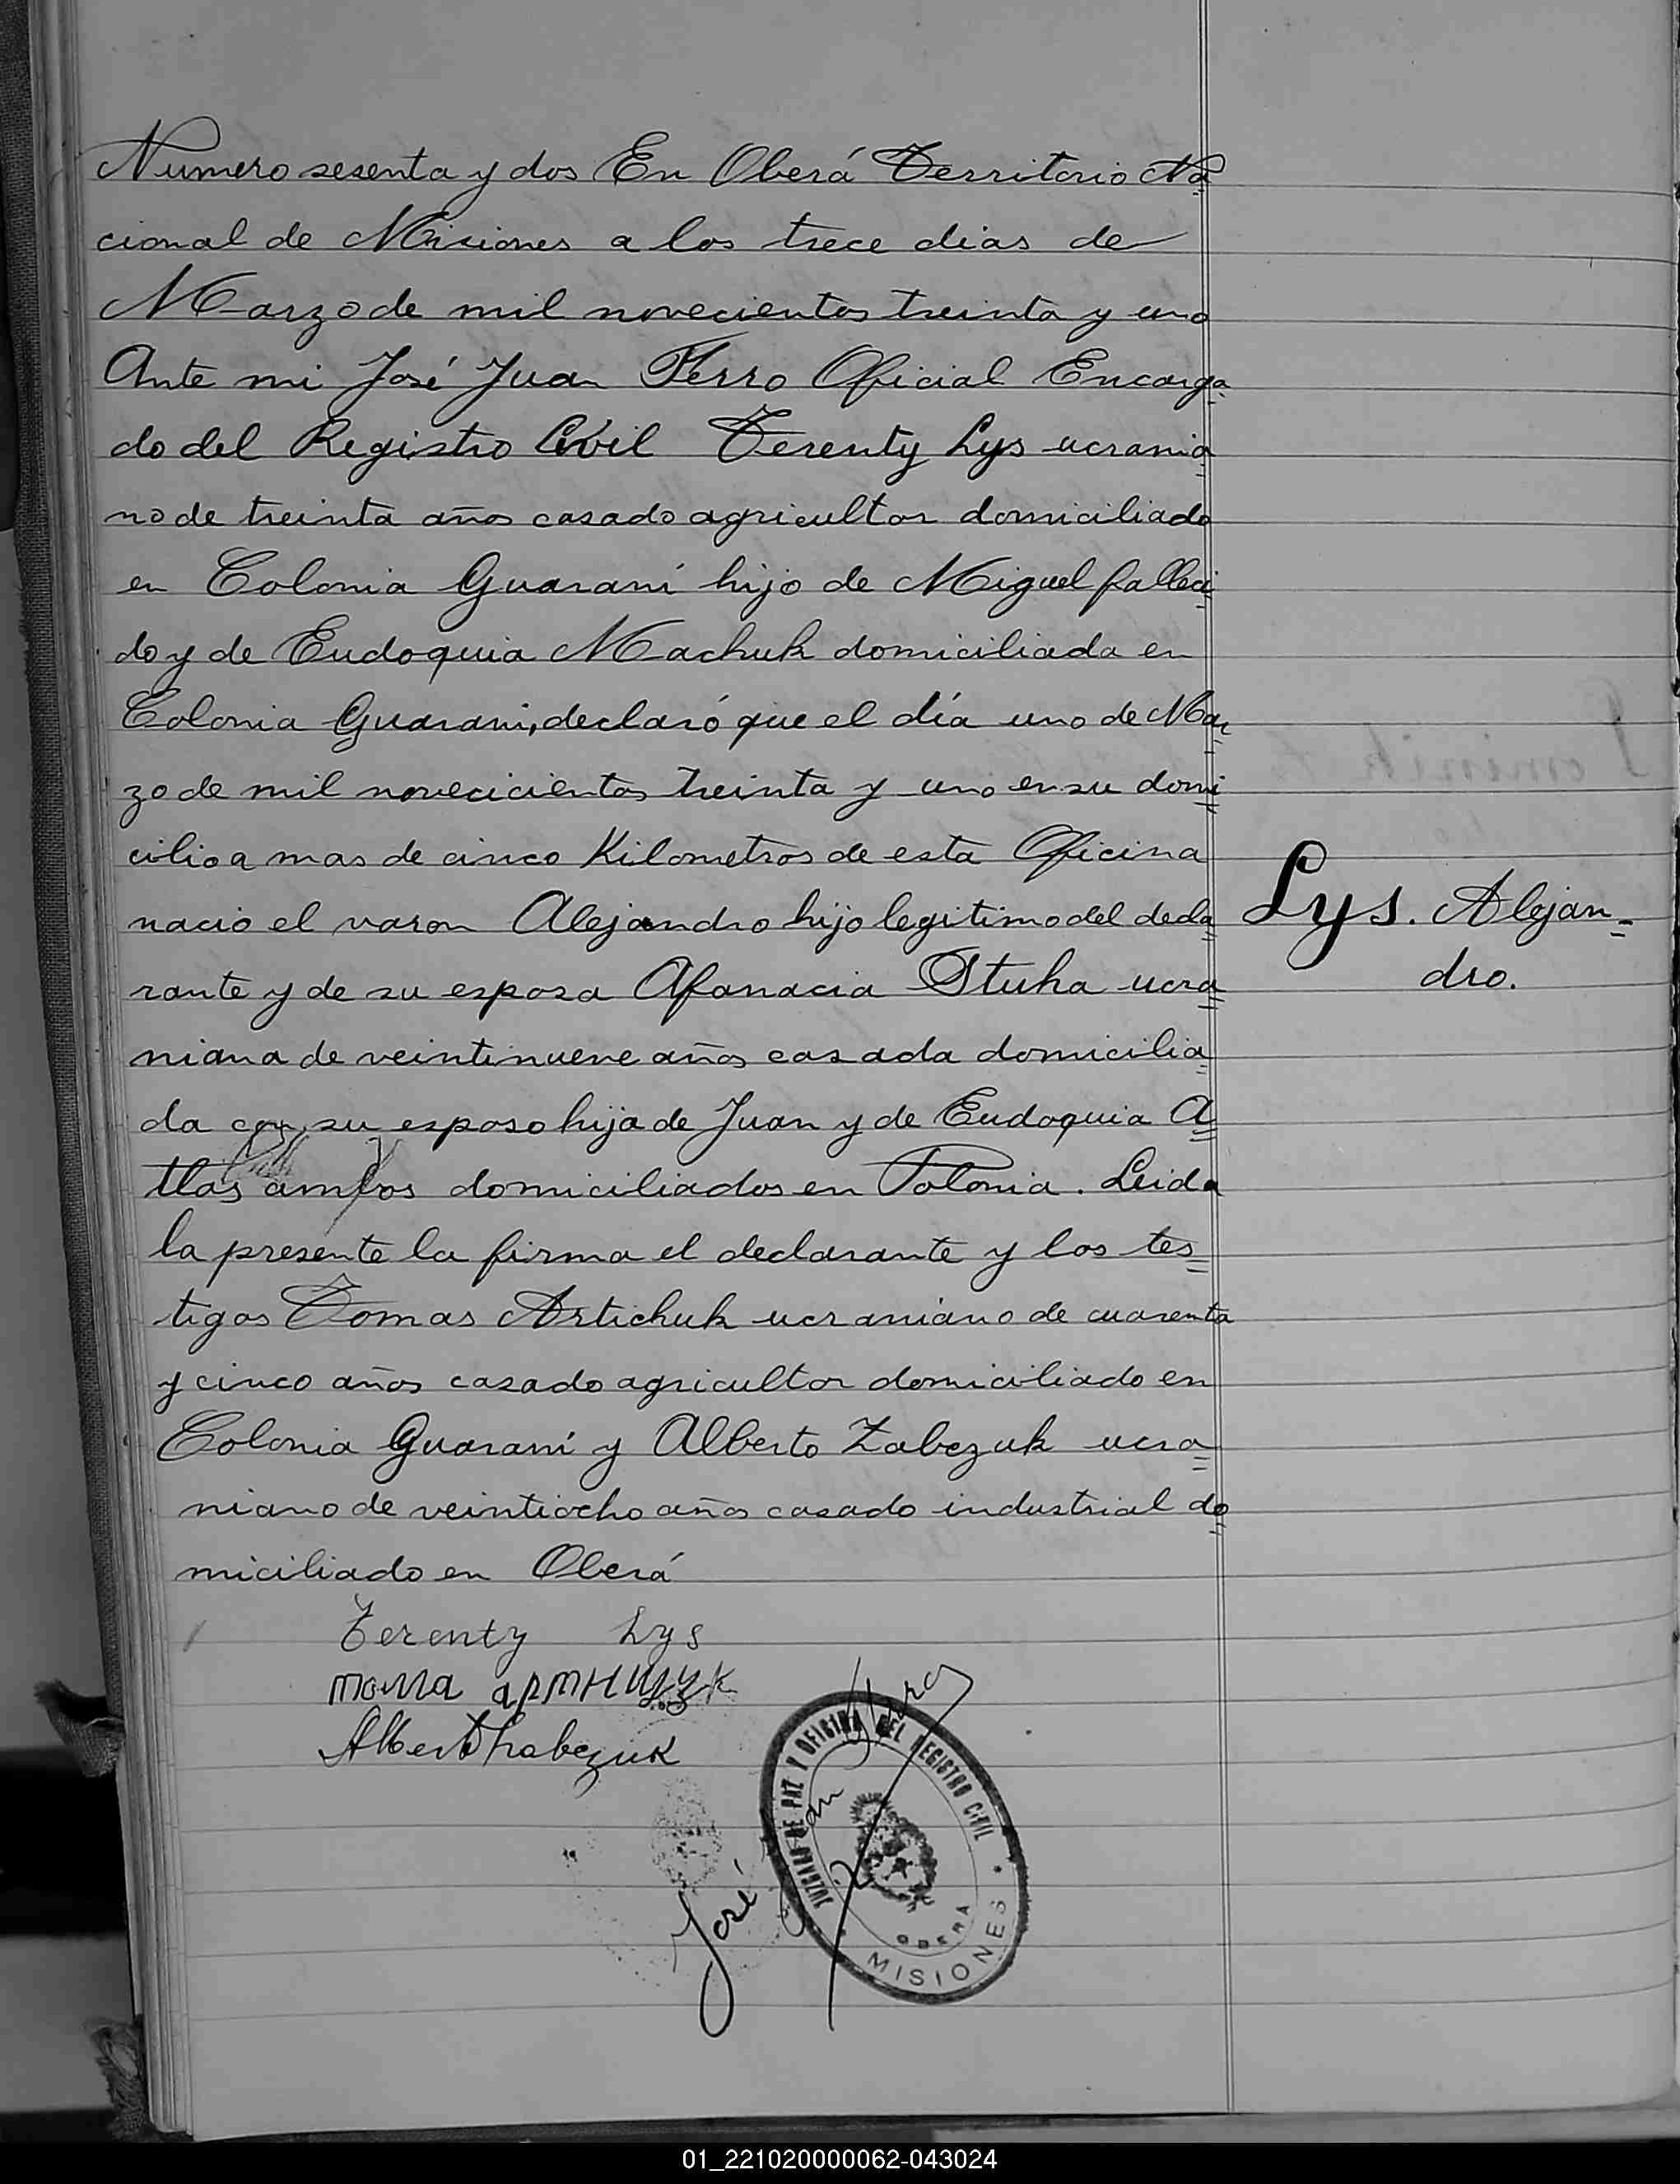 Numero sesenta y dos En Oberá Territorio Na
cional de Misiones a los trece dias de
Marzo de mil novecientos treinta y uno
Ante mi José Juan Ferro Oficial Encarga
do del Registro Civil Terenty Lys ucrania
no de treinta años casado agricultor domiciliado
en Colonia Guaraní hijo de Miguel falleci
do y de Eudoquia Machuk domiciliada en
Colonia Guarani, declaró que el día uno de Mar
zo de mil novecicientos treinta y uno en su domi
cilio a mas de cinco Kilometros de esta Oficina
nacio el varon Alejandro hijo legitimo del decla
rante y de su esposa Afanacia Stuha ucra
niana de veintinueve años casada domicilia
da con su esposo hija de Juan y de Eudoquia A
tlas ambos domiciliados en Polonia. Leida
la presente la firma el declarante y los tes
tigos Tomas Artichuk ucraniano de cuarenta
y cinco años casado agricultor domiciliado en
Colonia Guaraní y Alberto Zabczuk ucra
niano de veintiocho años casado industrial do
miciliado en Oberá
Lys. Alejan-
dro.
Terenty Lys
тома артищук
Albert
José Juan Ferro
JUZGADO DE PAZ Y OFICINA DEL REGISTRO CIVIL
OBERA
MISIONES
01_221020000062-043024